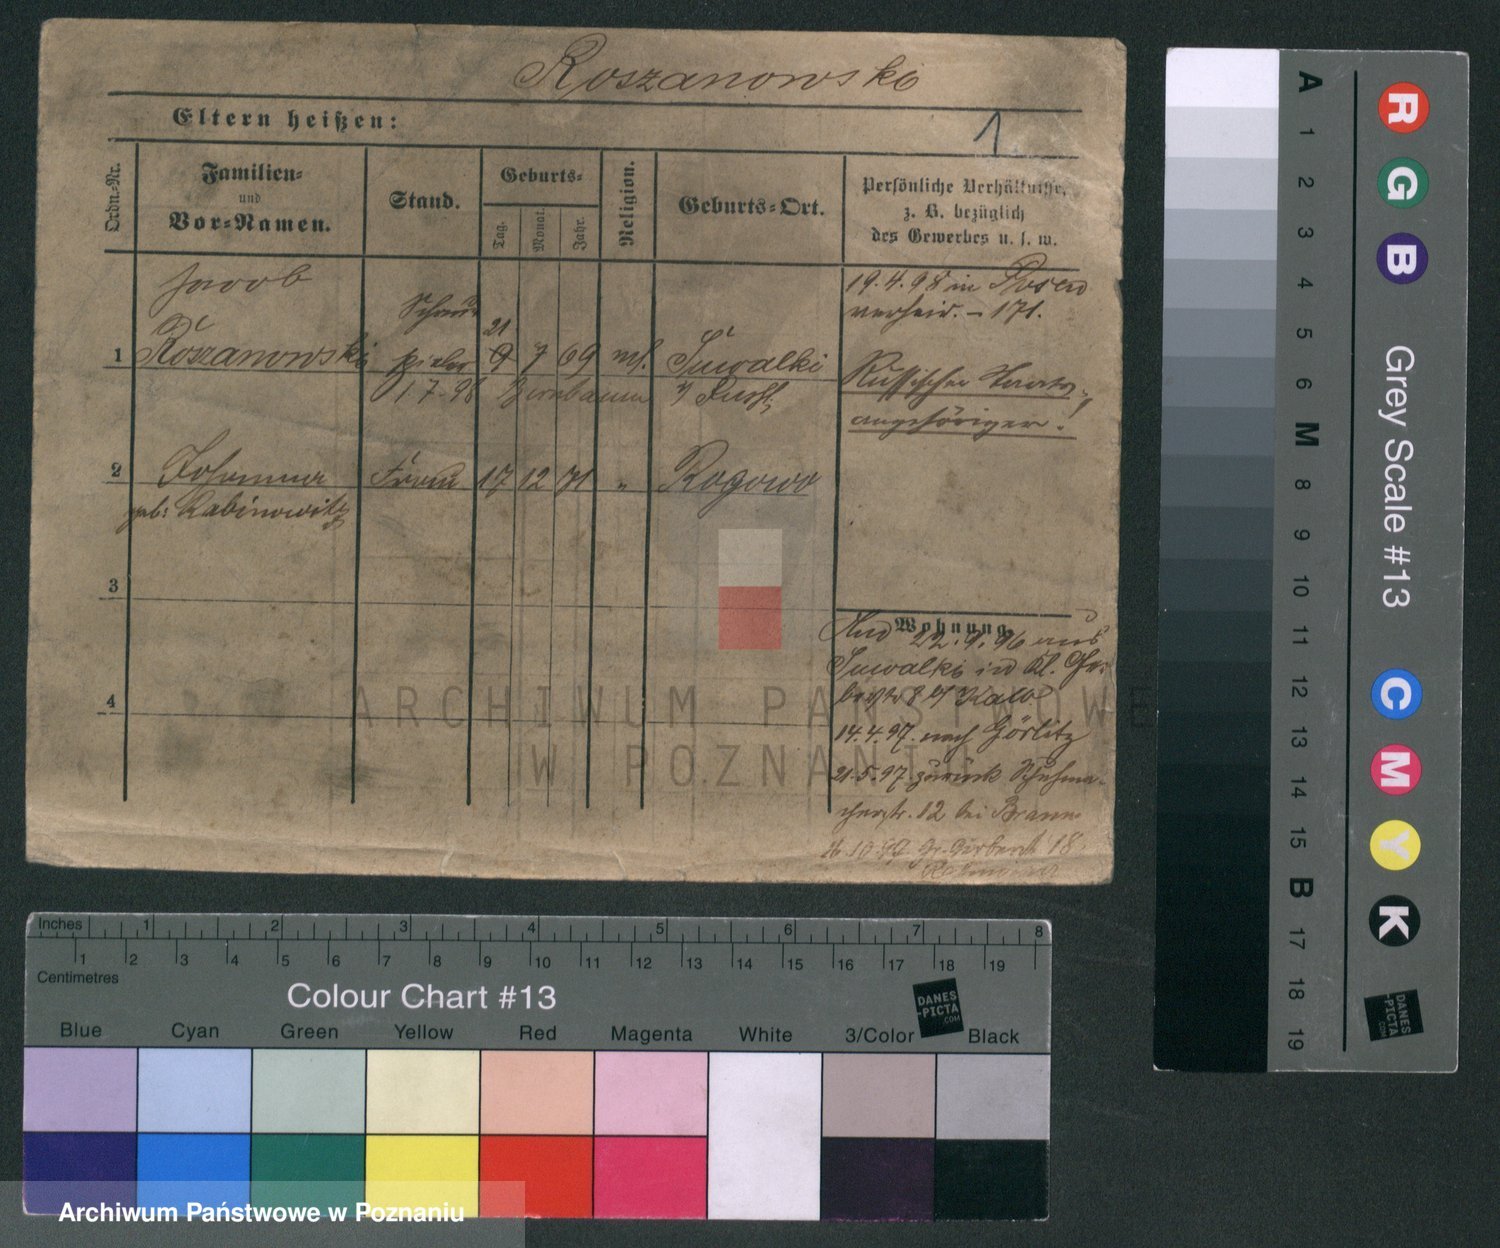 Roszanowski
Eltern heißen:
1
Ordn.-Nr.
Familien-
und
Vor-Namen.
Stand.
Geburts-
Tag.
Monat.
Jahr.
Religion.
Geburts-Ort.
Persönliche Verhältnisse,
z. B. bezüglich
des Gewerbes u. s. w.
Jacob
1 Roszanowski
Schau-
spieler
21
9 7 69 mos. Suwalki
1.7.96 Birnbaum
19.4.98 in Posen
verheir. – 171.
Russischer Staats-
angehöriger.
2 Johanna Frau 17 12 71 " Rogowo
geb: Rabinowitz
3
4
Wohnung
22.9.96 aus
Suwalki in Kl. Ger-
14.4.97. nach Görlitz
21.5.97 zurück Schuhma-
cherstr. 12 bei Braun
Gr. Gerberstr 18
ARCHIWUM PAŃSTWOWE
W POZNANIU
Inches 1 2 3 4 5 6 7 8
1 2 3 4 5 6 7 8 9 10 11 12 13 14 15 16 17 18 19
Centimetres
Colour Chart #13
DANES
-PICTA
.COM
Blue Cyan Green Yellow Red Magenta White 3/Color Black
Archiwum Państwowe w Poznaniu
A 1 2 3 4 5 6 M 8 9 10 11 12 13 14 15 B 17 18 19
R G B
Grey Scale #13
C M Y K
DANES
-PICTA
.COM